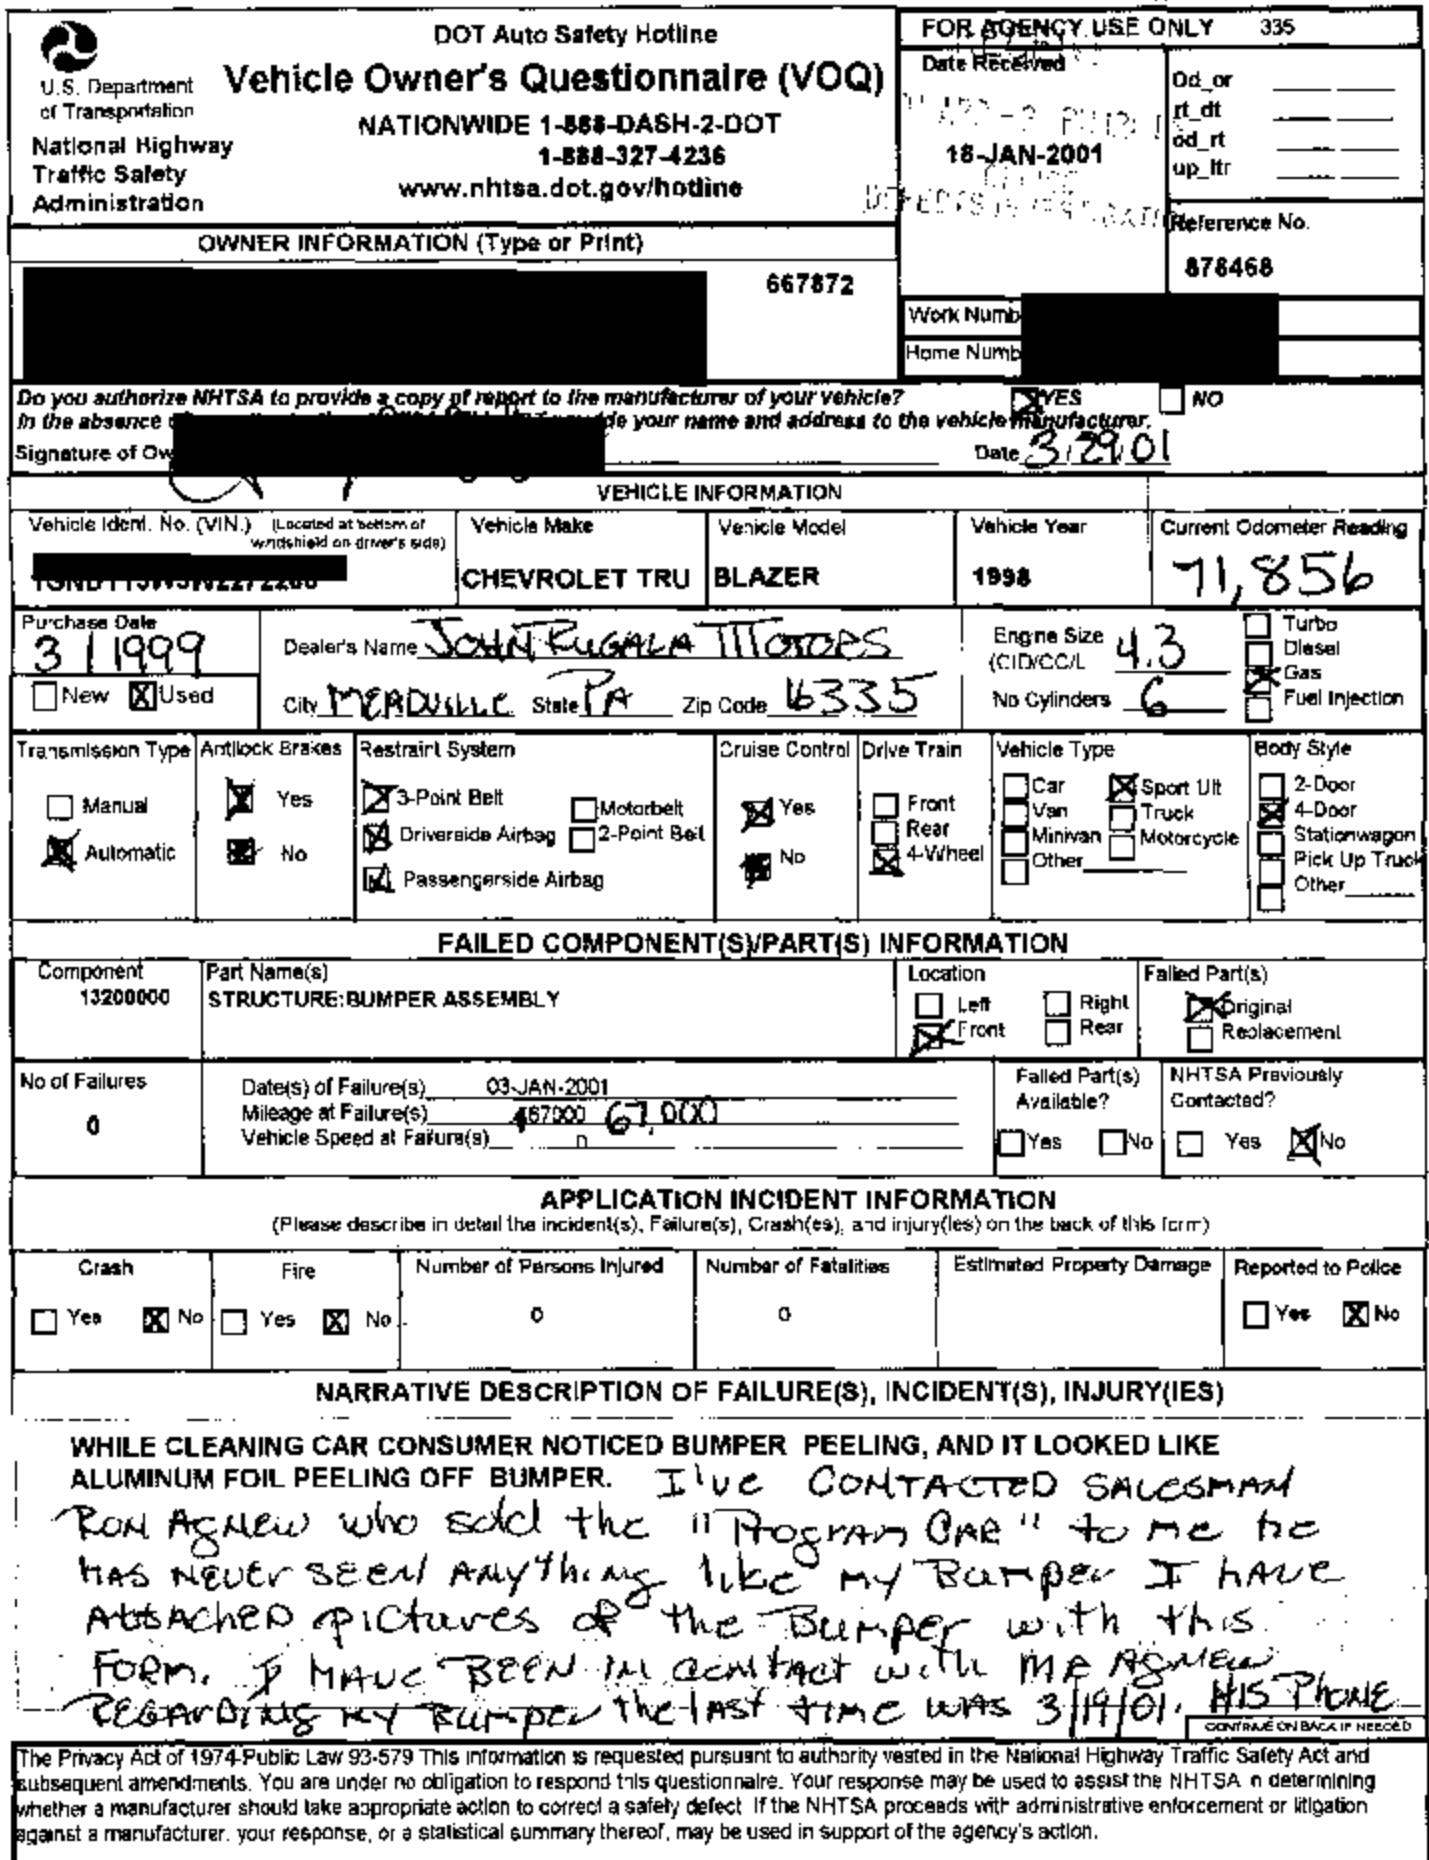 DOT Auto Safety Hotline
Vehicle Owner's Questionnaire (VOQ)
NATIONWIDE 1-888-DASH-2-DOT
1-888-327-4236
www.nhtsa.dot.gov/hotline
U.S. Department
of Transportation
National Highway
Traffic Safety
Administration
FOR AGENCY USE ONLY 335
Date Received
18-JAN-2001
Od_or
rt_dt
od_rt
up_ltr
Reference No.
878468
OWNER INFORMATION (Type or Print)
667872
Work Numb
Home Numb
Do you authorize NHTSA to provide a copy of report to the manufacturer of your vehicle? YES NO
In the absence de your name and address to the vehicle manufacturer.
Signature of Ow Date 3/29/01
VEHICLE INFORMATION
Vehicle Ident. No. (VIN.) (Located at bottom of
windshield on driver's side)
Vehicle Make
CHEVROLET TRU
Vehicle Model
BLAZER
Vehicle Year
1998
Current Odometer Reading
71,856
Purchase Date
3 / 1999
New Used
Dealer's Name JOHN RUGALA MOTORS
City MEADVILLE State PA Zip Code 16335
Engine Size
(CID/CC/L 4.3
No Cylinders 6
Turbo
Diesel
Gas
Fuel Injection
Transmission Type
Manual
Automatic
Antilock Brakes
Yes
No
Restraint System
3-Point Belt
Driverside Airbag
Passengerside Airbag
Motorbelt
2-Point Belt
Cruise Control
Yes
No
Drive Train
Front
Rear
4-Wheel
Vehicle Type
Car
Van
Minivan
Other
Sport Ult
Truck
Motorcycle
Body Style
2-Door
4-Door
Stationwagon
Pick Up Truck
Other
FAILED COMPONENT(S)/PART(S) INFORMATION
Component
13200000
Part Name(s)
STRUCTURE:BUMPER ASSEMBLY
Location
Left Right
Front Rear
Failed Part(s)
Original
Replacement
No of Failures
0
Date(s) of Failure(s) 03-JAN-2001
Mileage at Failure(s) 467000 67,000
Vehicle Speed at Failure(s)
Failed Part(s)
Available?
Yes No
NHTSA Previously
Contacted?
Yes No
APPLICATION INCIDENT INFORMATION
(Please describe in detail the incident(s), Failure(s), Crash(es), and injury(ies) on the back of this form)
Crash
Yes No
Fire
Yes No
Number of Persons Injured
0
Number of Fatalities
0
Estimated Property Damage
Reported to Police
Yes No
NARRATIVE DESCRIPTION OF FAILURE(S), INCIDENT(S), INJURY(IES)
WHILE CLEANING CAR CONSUMER NOTICED BUMPER PEELING, AND IT LOOKED LIKE
ALUMINUM FOIL PEELING OFF BUMPER. I'VE CONTACTED SALESMAN
RON AGNEW who sold the "Program CAR" to me he
HAS NEVER SEEN ANYThing like my Bumper I HAVE
Attached pictures of the Bumper with this
FORM. I HAVE BEEN IN contact with MR AGNEW
REGARDING MY Bumper the last time WAS 3/19/01. HIS PHONE
CONTINUE ON BACK IF NEEDED
The Privacy Act of 1974-Public Law 93-579 This information is requested pursuant to authority vested in the National Highway Traffic Safety Act and
subsequent amendments. You are under no obligation to respond this questionnaire. Your response may be used to assist the NHTSA n determining
whether a manufacturer should take appropriate action to correct a safety defect If the NHTSA proceeds with administrative enforcement or litigation
against a manufacturer. your response, or a statistical summary thereof, may be used in support of the agency's action.